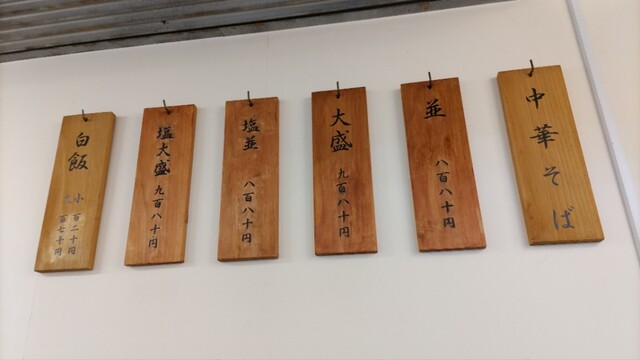 中華そば
並 八百八十円
大盛 九百八十円
塩並 八百八十円
塩大盛 九百八十円
白飯
小 百二十円
大 百七十円